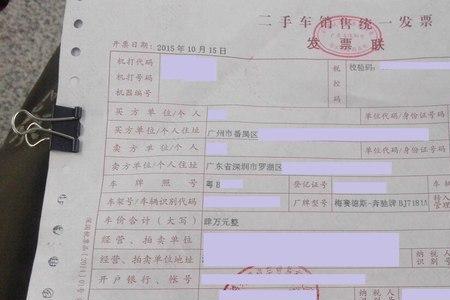 二手车销售统一发票
发票联
开票日期: 2015年10月15日
机打代码
机打号码
机器编号
税控码
校验码:
买方单位/个人
单位代码/身份证号码
买方单位/个人住址
广州市番禺区
卖方单位/个人
单位代码/身份证号
卖方单位/个人住址
广东省深圳市罗湖区
车牌照号
粤B
登记证号
车架号/车辆识别代码
厂牌型号
梅赛德斯-奔驰牌 BJ7181A
车价合计(大写)
肆万元整
经营、拍卖单位
经营、拍卖单位地址
纳税人识别号
开户银行、帐号